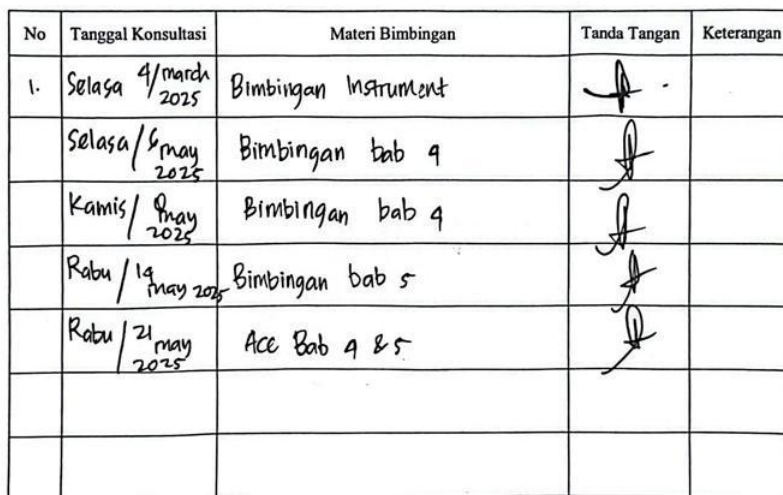 No Tanggal Konsultasi Materi Bimbingan Tanda Tangan Keterangan
1. Selasa 4/march 2025 Bimbingan Instrument
Selasa/6 may 2025 Bimbingan bab 4
Kamis/ 8 may 2025 Bimbingan bab 4
Rabu/14 may 2025 Bimbingan bab 5
Rabu/21 may 2025 Acc Bab 4 & 5